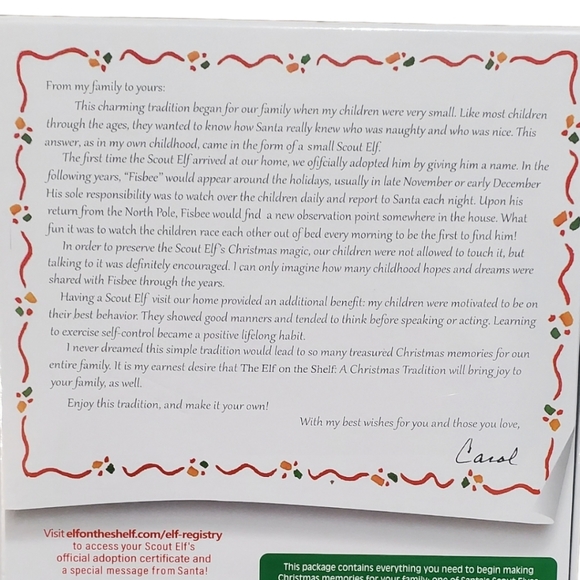 From my family to yours:
This charming tradition began for our family when my children were very small. Like most children
through the ages, they wanted to know how Santa really knew who was naughty and who was nice. This
answer, as in my own childhood, came in the form of a small Scout Elf.
The first time the Scout Elf arrived at our home, we offcially adopted him by giving him a name. In the
following years, "Fisbee" would appear around the holidays, usually in late November or early December
His sole responsibility was to watch over the children daily and report to Santa each night. Upon his
return from the North Pole, Fisbee would fnd a new observation point somewhere in the house. What
fun it was to watch the children race each other out of bed every morning to be the first to find him!
In order to preserve the Scout Elf's Christmas magic, our children were not allowed to touch it, but
talking to it was definitely encouraged. I can only imagine how many childhood hopes and dreams were
shared with Fisbee through the years.
Having a Scout Elf visit our home provided an additional benefit: my children were motivated to be on
their best behavior. They showed good manners and tended to think before speaking or acting. Learning
to exercise self-control became a positive lifelong habit.
I never dreamed this simple tradition would lead to so many treasured Christmas memories for oun
entire family. It is my earnest desire that The Elf on the Shelf: A Christmas Tradition will bring joy to
your family, as well.
Enjoy this tradition, and make it your own!
With my best wishes for you and those you love,
Carol
Visit elfontheshelf.com/elf-registry
to access your Scout Elf's
official adoption certificate and
a special message from Santa!
This package contains everything you need to begin making
Christmas memories for your family: one of Santa's Scout Elves